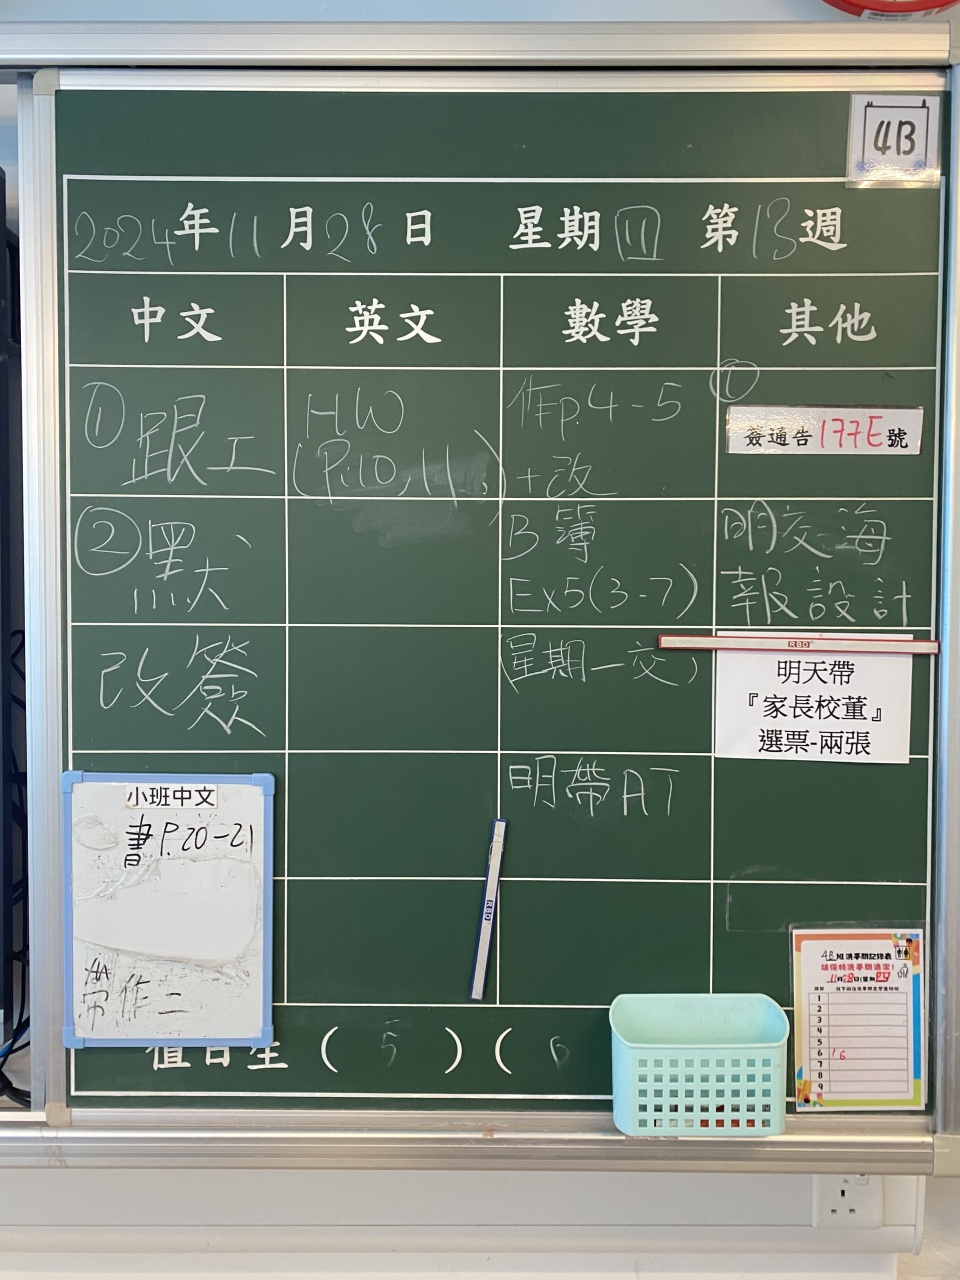 4B
2024年11月28日 星期四 第13週
中文 英文 數學 其他
① 跟工
② 默
改簽
小班中文
書P.20-21
帶作二
HW
(P.10,11)
作p.4-5
+改
B簿
Ex5(3-7)
(星期一交)
明帶AT
①
簽通告177E號
明交海
報設計
RBD
明天帶
『家長校董』
選票-兩張
RBD
值日生 ( 5 ) ( 6
4B班洗手間記錄表
請保持洗手間清潔!
11月28日(星期四)
1
2
3
4
5
6 16
7
8
9